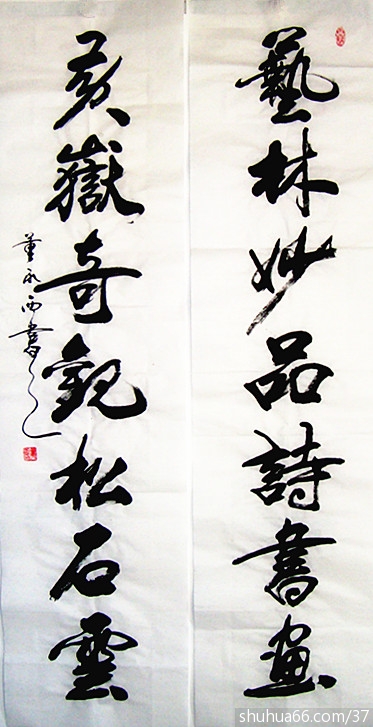 藝林妙品詩書画
黄嶽奇観松石雲
董永西書
shuhua66.com/37